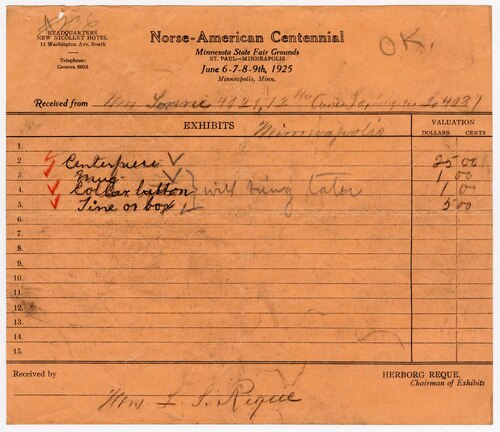 HEADQUARTERS
NEW NICOLLET HOTEL
11 Washington Ave. South
Telephone:
Geneva 6858
Norse-American Centennial
Minnesota State Fair Grounds
ST. PAUL—MINNEAPOLIS
June 6-7-8-9th, 1925
Minneapolis, Minn.
OK.
Received from
EXHIBITS Minneapolis
VALUATION
DOLLARS CENTS
1.
2. Centerpiece 25 00
3. Mug 1 00
4. Collar button will bring later 1 00
5. Tine or box 5 00
6.
7.
8.
9.
10.
11.
12.
13.
14.
15.
Received by
HERBORG REQUE,
Chairman of Exhibits
Mrs. L. S. Reque